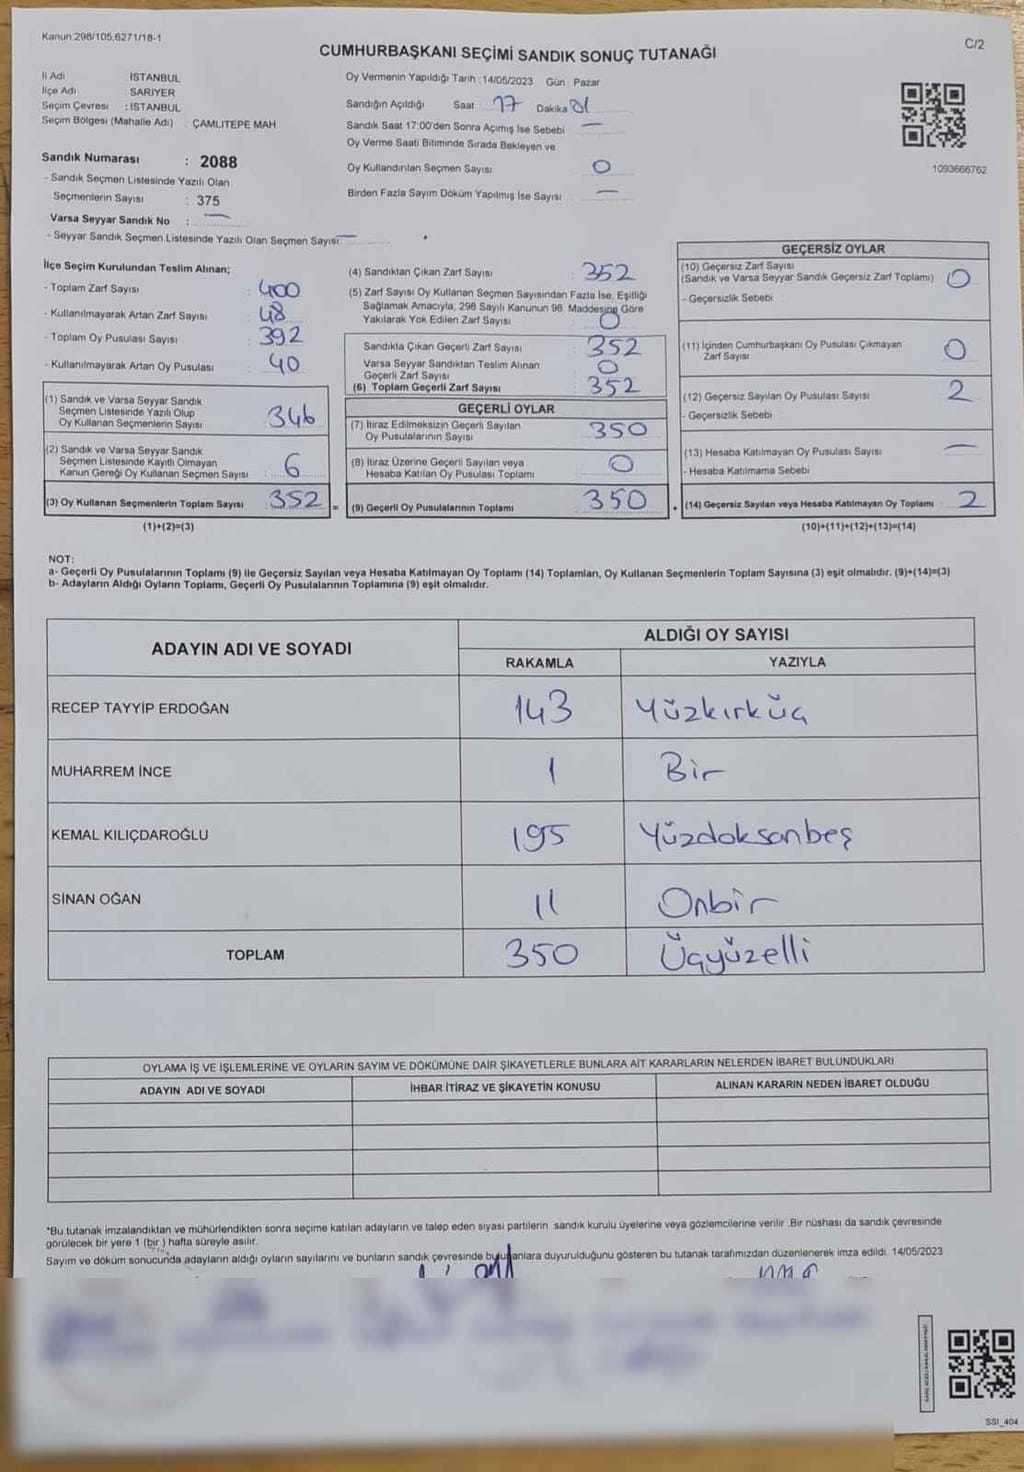 Kanun 298/105,6271/18-1
C/2
CUMHURBAŞKANI SEÇİMİ SANDIK SONUÇ TUTANAĞI
İl Adı İSTANBUL
İlçe Adı SARIYER
Seçim Çevresi : İSTANBUL
Seçim Bölgesi (Mahalle Adı) : ÇAMLITEPE MAH.
Sandık Numarası : 2088
- Sandık Seçmen Listesinde Yazılı Olan
Seçmenlerin Sayısı : 375
Varsa Seyyar Sandık No : —
- Seyyar Sandık Seçmen Listesinde Yazılı Olan Seçmen Sayısı: —
Oy Vermenin Yapıldığı Tarih : 14/05/2023 Gün : Pazar
Sandığın Açıldığı Saat 17 Dakika 01
Sandık Saat 17:00'den Sonra Açımış İse Sebebi —
Oy Verme Saati Bitiminde Sırada Bekleyen ve
Oy Kullandırılan Seçmen Sayısı 0
Birden Fazla Sayım Döküm Yapılmış İse Sayısı —
1093666762
İlçe Seçim Kurulundan Teslim Alınan;
- Toplam Zarf Sayısı : 400
- Kullanılmayarak Artan Zarf Sayısı : 48
- Toplam Oy Pusulası Sayısı : 392
- Kullanılmayarak Artan Oy Pusulası : 40
(1) Sandık ve Varsa Seyyar Sandık
Seçmen Listesinde Yazılı Olup
Oy Kullanan Seçmenlerin Sayısı : 346
(2) Sandık ve Varsa Seyyar Sandık
Seçmen Listesinde Kayıtlı Olmayan
Kanun Gereği Oy Kullanan Seçmen Sayısı : 6
(3) Oy Kullanan Seçmenlerin Toplam Sayısı : 352
(1)+(2)=(3)
=
(4) Sandıktan Çıkan Zarf Sayısı : 352
(5) Zarf Sayısı Oy Kullanan Seçmen Sayısından Fazla İse, Eşitliği
Sağlamak Amacıyla, 298 Sayılı Kanunun 98. Maddesine Göre
Yakılarak Yok Edilen Zarf Sayısı : 0
Sandıkta Çıkan Geçerli Zarf Sayısı : 352
Varsa Seyyar Sandıktan Teslim Alınan
Geçerli Zarf Sayısı : 0
(6) Toplam Geçerli Zarf Sayısı : 352
GEÇERLİ OYLAR
(7) İtiraz Edilmeksizin Geçerli Sayılan
Oy Pusulalarının Sayısı : 350
(8) İtiraz Üzerine Geçerli Sayılan veya
Hesaba Katılan Oy Pusulası Toplamı : 0
(9) Geçerli Oy Pusulalarının Toplamı : 350
+
GEÇERSİZ OYLAR
(10) Geçersiz Zarf Sayısı
(Sandık ve Varsa Seyyar Sandık Geçersiz Zarf Toplamı) : 0
- Geçersizlik Sebebi :
(11) İçinden Cumhurbaşkanı Oy Pusulası Çıkmayan
Zarf Sayısı : 0
(12) Geçersiz Sayılan Oy Pusulası Sayısı : 2
- Geçersizlik Sebebi :
(13) Hesaba Katılmayan Oy Pusulası Sayısı : —
- Hesaba Katılmama Sebebi :
(14) Geçersiz Sayılan veya Hesaba Katılmayan Oy Toplamı : 2
(10)+(11)+(12)+(13)=(14)
NOT:
a- Geçerli Oy Pusulalarının Toplamı (9) ile Geçersiz Sayılan veya Hesaba Katılmayan Oy Toplamı (14) Toplamları, Oy Kullanan Seçmenlerin Toplam Sayısına (3) eşit olmalıdır. (9)+(14)=(3)
b- Adayların Aldığı Oyların Toplamı, Geçerli Oy Pusulalarının Toplamına (9) eşit olmalıdır.
ADAYIN ADI VE SOYADI
ALDIĞI OY SAYISI
RAKAMLA YAZIYLA
RECEP TAYYİP ERDOĞAN 143 Yüzkırküç
MUHARREM İNCE 1 Bir
KEMAL KILIÇDAROĞLU 195 Yüzdoksanbeş
SİNAN OĞAN 11 Onbir
TOPLAM 350 Üçyüzelli
OYLAMA İŞ VE İŞLEMLERİNE VE OYLARIN SAYIM VE DÖKÜMÜNE DAİR ŞİKAYETLERLE BUNLARA AİT KARARLARIN NELERDEN İBARET BULUNDUKLARI
ADAYIN ADI VE SOYADI İHBAR İTİRAZ VE ŞİKAYETİN KONUSU ALINAN KARARIN NEDEN İBARET OLDUĞU
*Bu tutanak imzalandıktan ve mühürlendikten sonra seçime katılan adayların ve talep eden siyasi partilerin sandık kurulu üyelerine veya gözlemcilerine verilir. Bir nüshası da sandık çevresinde
görülecek bir yere 1 (bir ) hafta süreyle asılır.
Sayım ve döküm sonucunda adayların aldığı oyların sayılarını ve bunların sandık çevresinde bulunanlara duyurulduğunu gösteren bu tutanak tarafımızdan düzenlenerek imza edildi. 14/05/2023
SSI_404